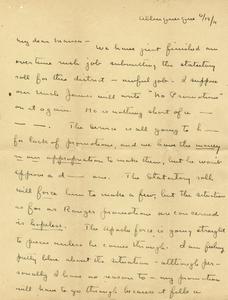 Albuquerque 4/14/11
My dear Mamma -
We have just finished an
overtime rush job submitting the statutory
roll for this district - awful job. I suppose
our Uncle James will write "No Promotions"
on it again. He is nothing short of a -
- - . The Service is all going to h -
for lack of promotions, and we have the money
in our appropriation to make them, but he won't
approve a d - one. The Statutory roll
will force him to make a few, but the situation
as far as Ranger promotions are concerned
is hopeless. The Apache force is going straight
to pieces unless he comes through. I am feeling
pretty blue about the situation - although per-
sonally I have no reason to - my promotion
will have to go through because it fills a